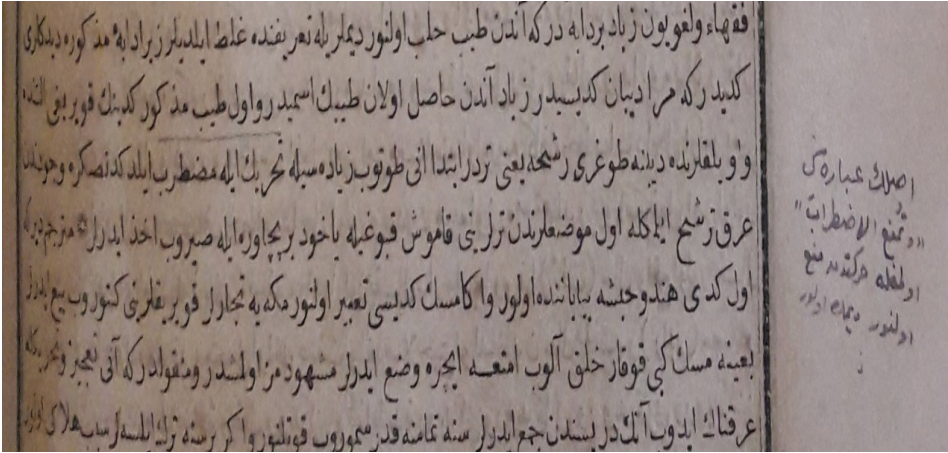 فقهاء ولغويون زباد بر دابه در كه آندن طيب حلب اولنور ديملريله تعريفنده غلط ايلديلر زيرا دابهٔ مذكوره ديدكلرى
كديدر كه مراد يبان كديسيدر زباد آندن حاصل اولان طيبك اسميدر و اول طيب مذكور كدينك قويريغى آلتنده
و بلقلرنده دبينه طوغرى رشحه يعنى تردر ابتدا انى طوتوب زياده سيله تحريك ايله مضطرب ايلدكدنصكره
عرق ترشح ايلمكله اول موضعلرندن ترلرينى قامش قبوغيله ياخود بر پچاوره ايله صيروب اخذ ايدرلر مترجم دير كه
اول كدى هند و حبشه بياباننده اولور و اكا مسك كديسى تعبير اولنور مكه يه تجارلر قويريقلرينى كتوروب بيع ايدرلر
بعينه مسك كبى قوقار خلق آلوب امتعه ايچره وضع ايدرلر مشهودمز اولمشدر و منقولدر كه آنى تعجيز و تحريكله
عرقناك ايدوب آنك دريسندن جمع ايدرلر سنه تمامنه قدر سموروب قوتلنور و اكر بر سنه ترك ايلسه لر سبب هلاكى اولور
اصلك عباره سى
"وتمنع الاضطراب"
اولمغله حركتدن منع
اولنور ديمك اولور